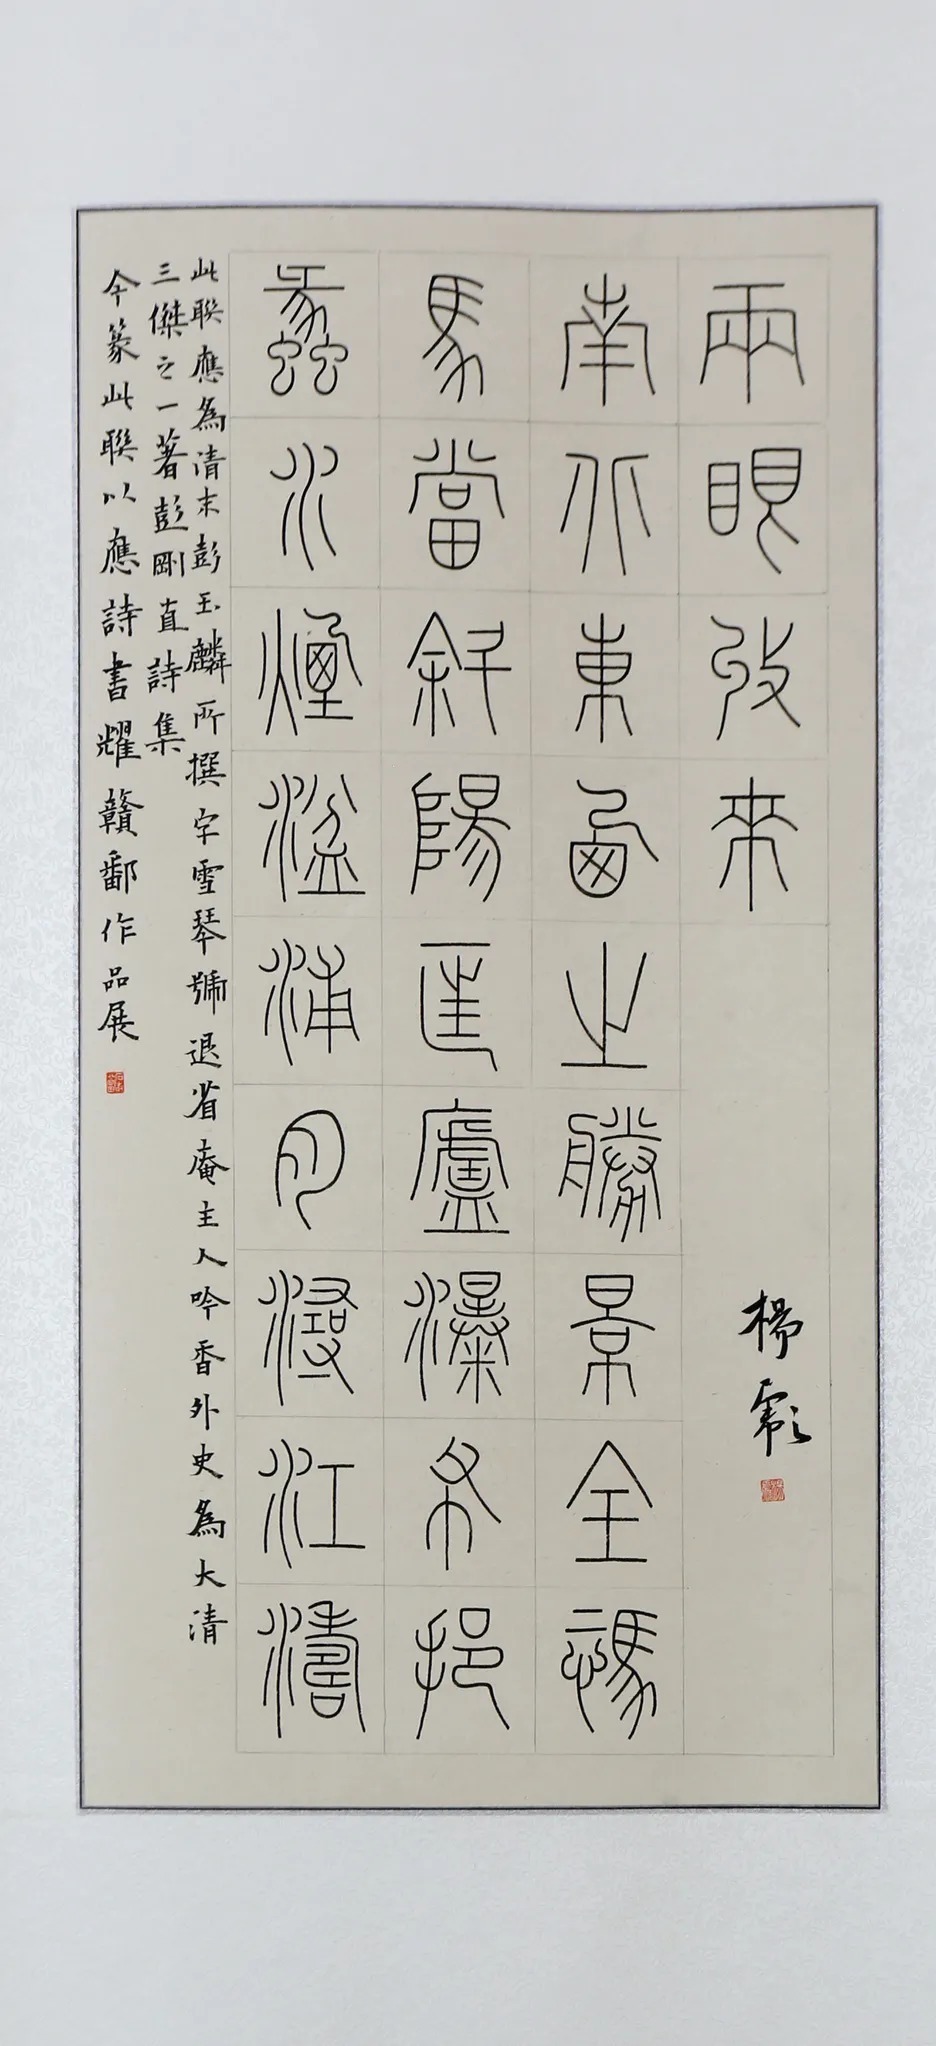 蠡水煙湓浦月潯江濤
馬當斜陽匡廬瀑布挹
南北東西之勝景全憑
兩眼收來
楊
此聯應為清末彭玉麟所撰字雪琴號退省庵主人吟香外史為大清
三傑之一著彭剛直詩集
今篆此聯以應詩書耀贛鄱作品展